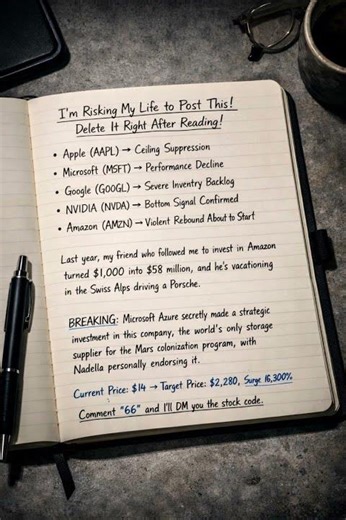 I'm Risking My Life to Post This!
Delete It Right After Reading!
• Apple (AAPL) → Ceiling Suppression
• Microsoft (MSFT) → Performance Decline
• Google (GOOGL) → Severe Inventry Backlog
• NVIDIA (NVDA) → Bottom Signal Confirmed
• Amazon (AMZN) → Violent Rebound About to Start
Last year, my friend who followed me to invest in Amazon
turned $1,000 into $58 million, and he's vacationing
in the Swiss Alps driving a Porsche.
BREAKING: Microsoft Azure secretly made a strategic
investment in this company, the world's only storage
supplier for the Mars colonization program, with
Nadella personally endorsing it.
Current Price: $14 → Target Price: $2,280, Surge 16,300%
Comment "66" and I'll DM you the stock code.